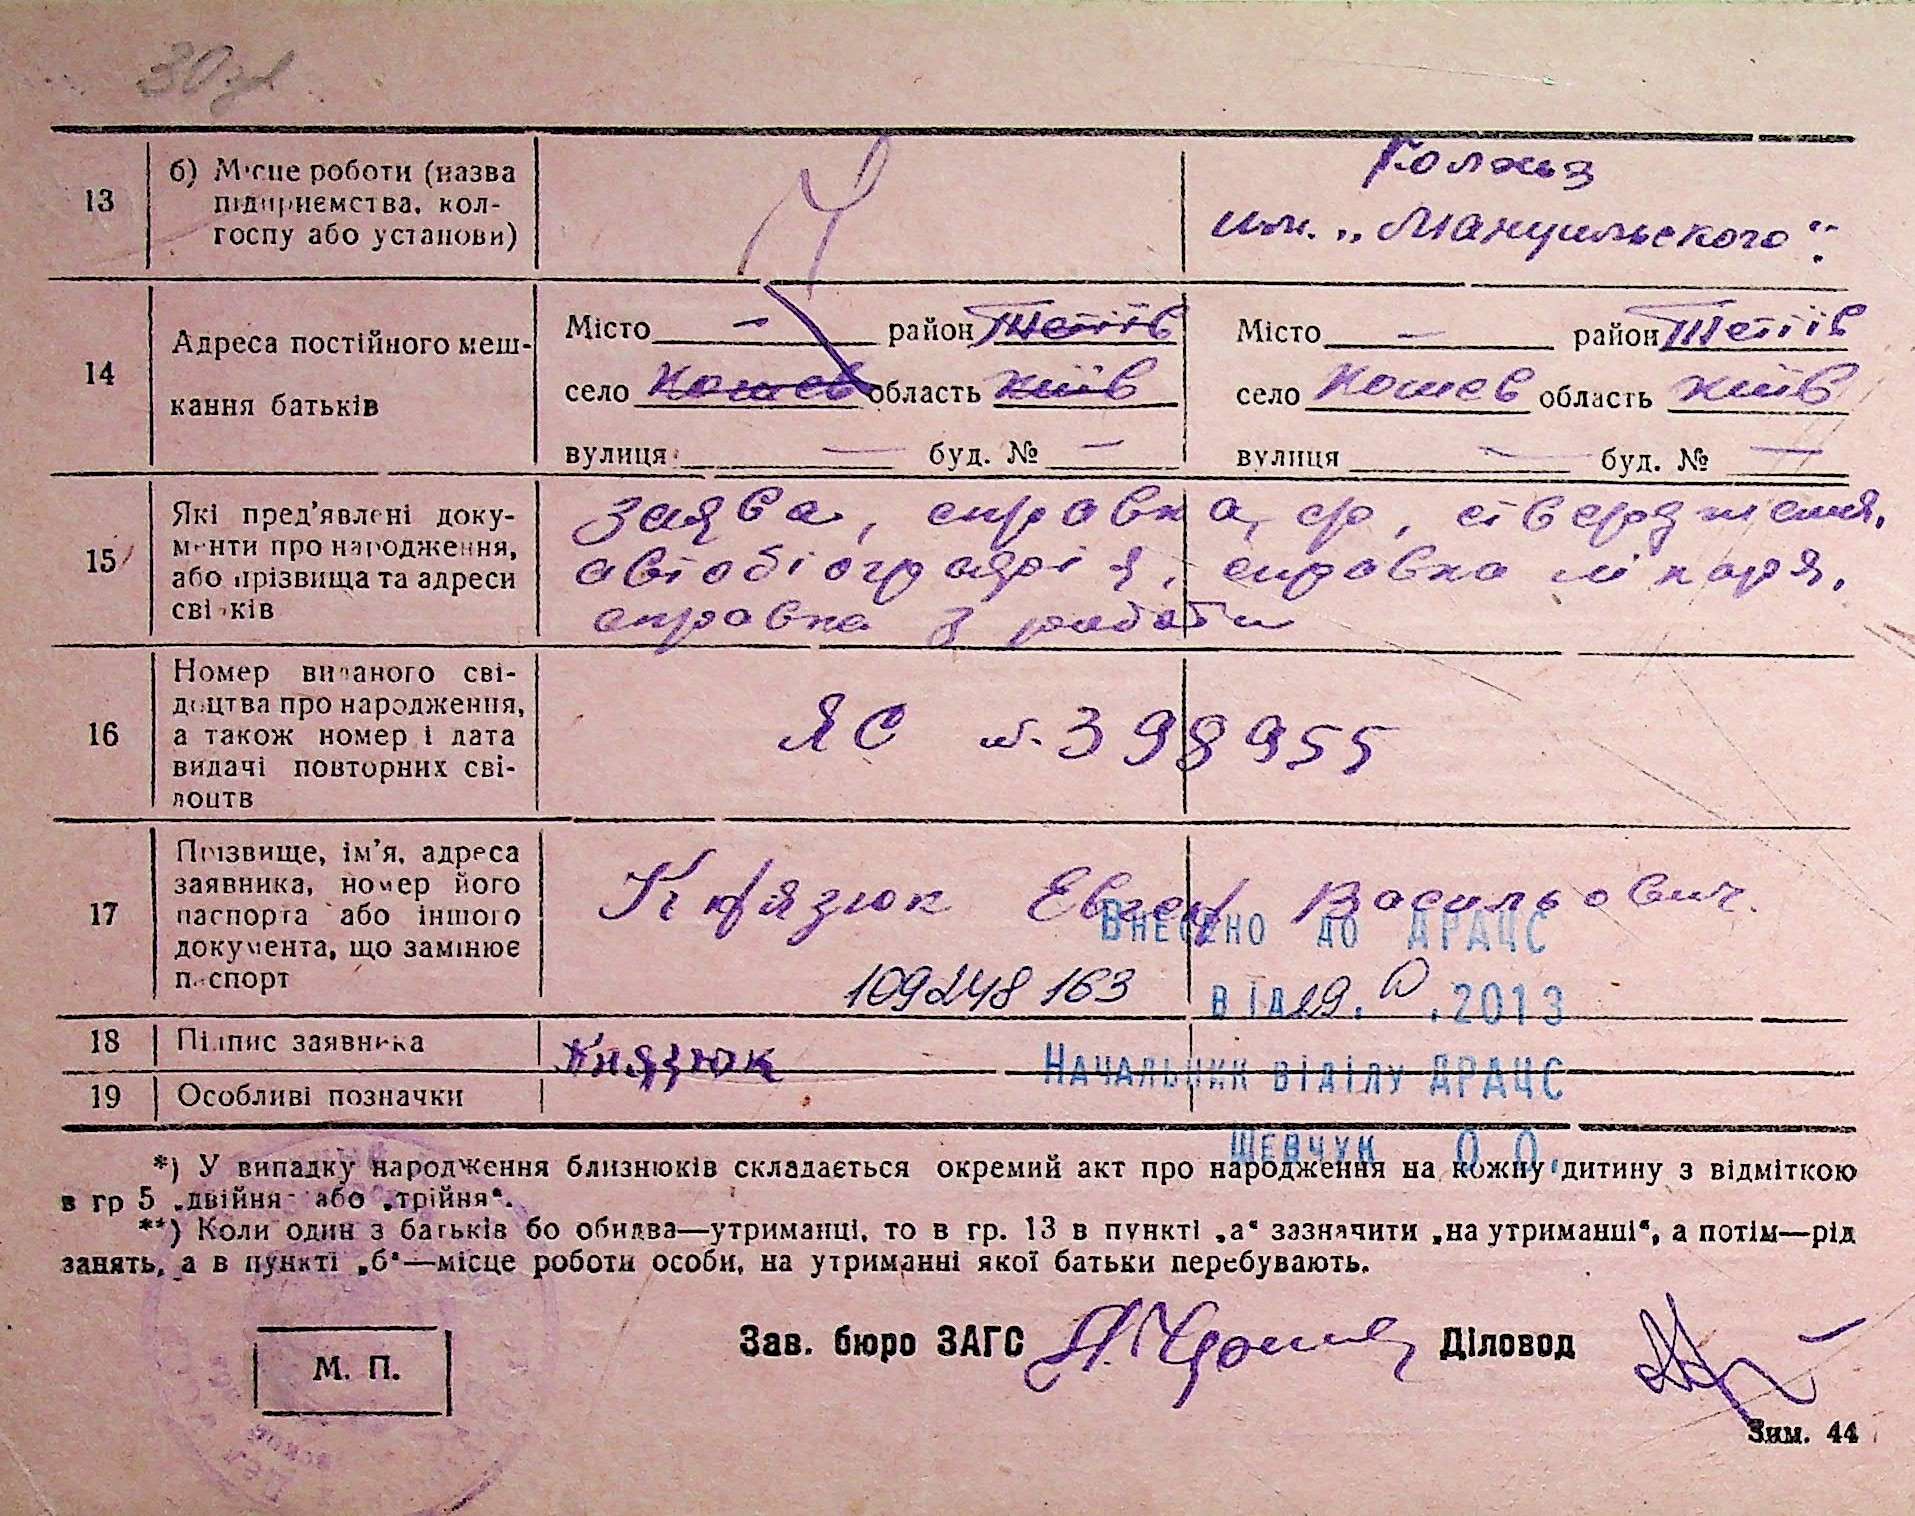 13 б) Місце роботи (назва підприємства, колгоспу або установи)
Колхоз
им. „Мануильского“.
14 Адреса постійного мешкання батьків
Місто — район Тетіїв
село Кошев область Київ
вулиця — буд. № —
Місто — район Тетіїв
село Кошев область Київ
вулиця — буд. № —
15 Які пред'явлені документи про народження, або прізвища та адреси свідків
заява, справка, ствердження,
автобіографія, справка лікаря,
справка з работи
16 Номер виданого свідоцтва про народження, а також номер і дата видачі повторних свідоцтв
ЯС № 398955
17 Прізвище, ім'я, адреса заявника, номер його паспорта або іншого документа, що замінює паспорт
Князюк Евген Васильович.
Внесено до ДРАЦС
109248163
від 29. .2013
18 Підпис заявника
Князюк
Начальник відділу ДРАЦС
19 Особливі позначки
Шевчук О.О.
*) У випадку народження близнюків складається окремий акт про народження на кожну дитину з відміткою
в гр 5 „двійня“ або „трійня“.
**) Коли один з батьків бо обидва—утриманці, то в гр. 13 в пункті „а“ зазначити „на утриманці“, а потім—рід
занять, а в пункті „б“—місце роботи особи, на утриманні якої батьки перебувають.
Зав. бюро ЗАГС Діловод
М. П.
Зим. 44